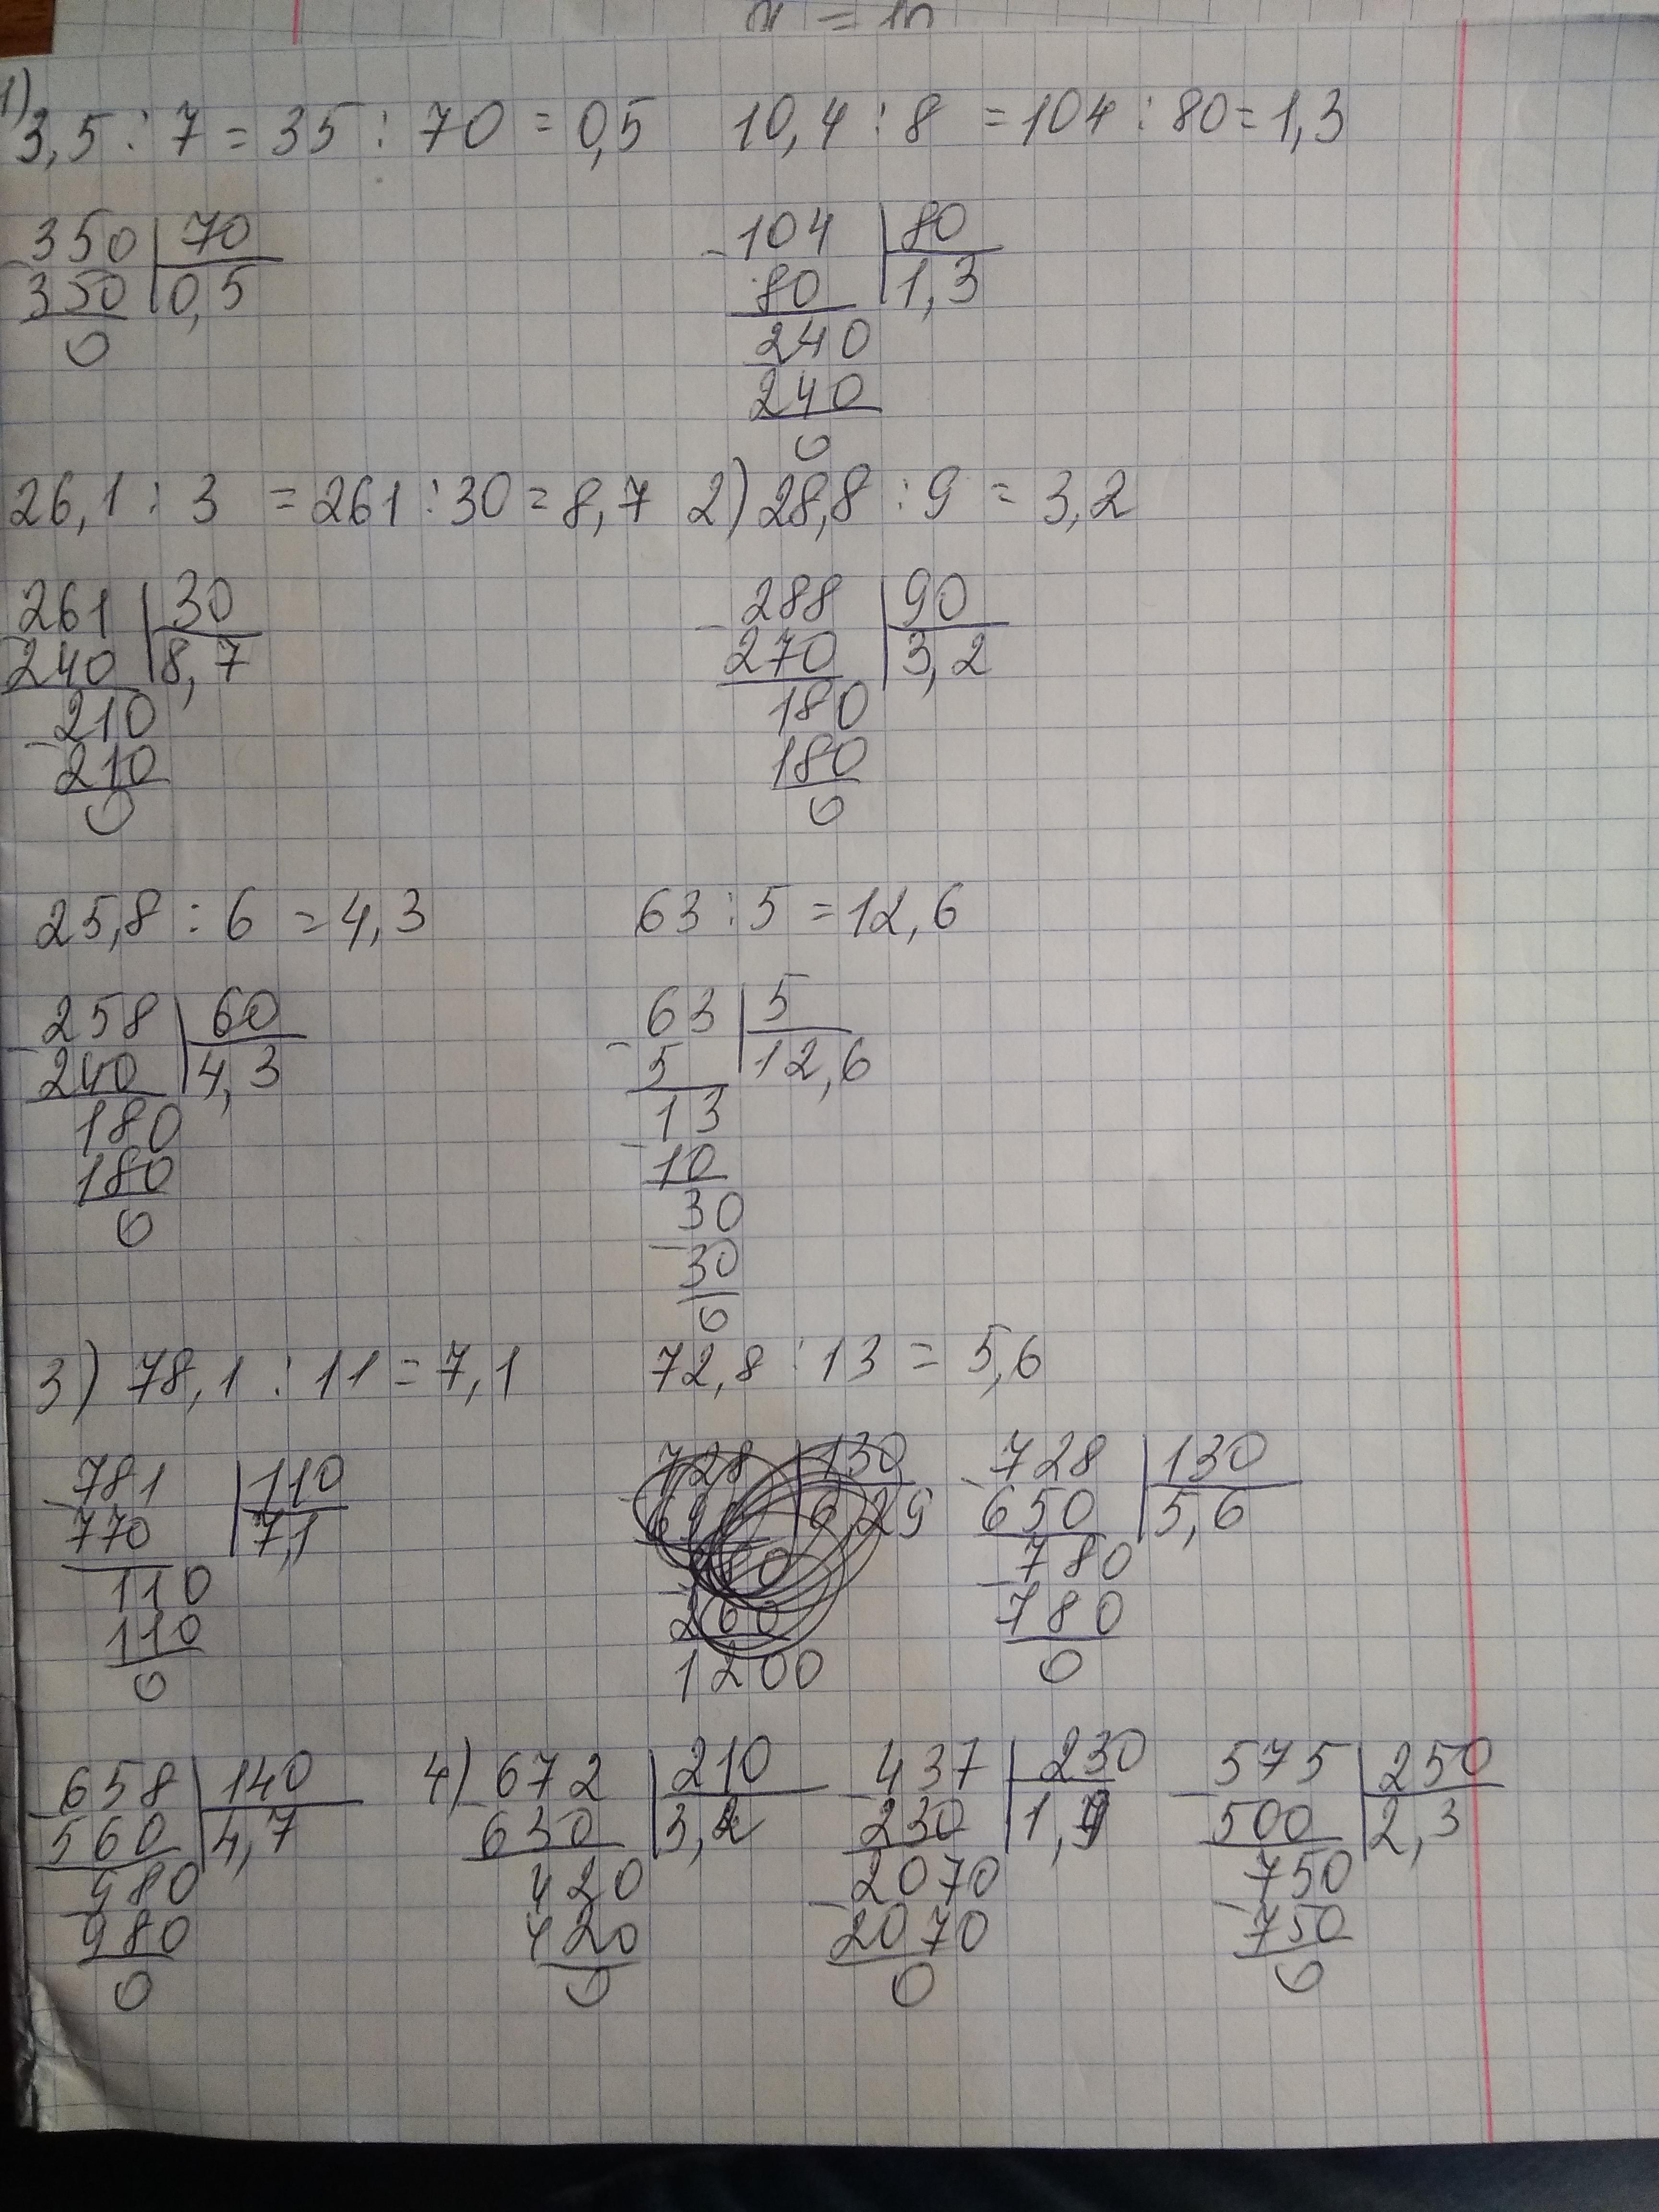 1)
3,5 : 7 = 35 : 70 = 0,5 10,4 : 8 = 104 : 80 = 1,3
350 70 104 80
350 0,5 80 1,3
0 240
240
0
26,1 : 3 = 261 : 30 = 8,7 2) 28,8 : 9 = 3,2
261 30 288 90
240 8,7 270 3,2
210 180
210 180
0 0
25,8 : 6 = 4,3 63 : 5 = 12,6
258 60 63 5
240 4,3 5 12,6
180 13
180 10
0 30
30
0
3) 78,1 : 11 = 7,1 72,8 : 13 = 5,6
781 110 728 130 728 130
770 7,1 650 5,6
110 780
110 260 780
0 1200 0
658 140 4) 672 210 437 230 575 250
560 4,7 630 3,2 230 1,9 500 2,3
980 420 2070 750
980 420 2070 750
0 0 0 0